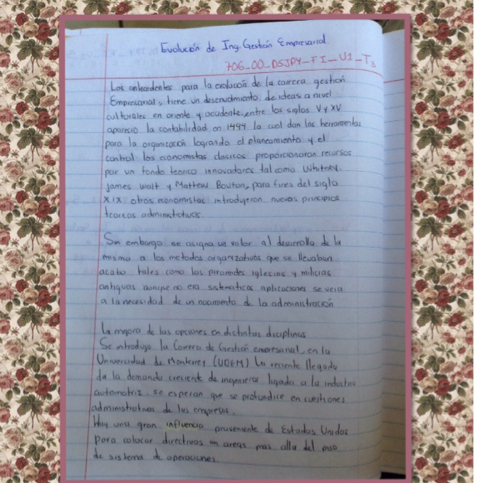 Evolución de Ing. Gestión Empresarial
706_00_DSJPY_FI_U1_T3
Los antecedentes para la evolución de la carrera gestión
Empresarial, tiene un descendimiento de ideas a nivel
culturales en oriente y occidente, entre los siglos V y XV
aparecio la contabilidad en 1494 la cual dan las herramientas
para la organización logrando el planeamiento y el
control los economistas clasicos proporcionaron recursos
por un fondo teorico innovadores tal como Whitney,
james watt y Mattew Boulton, para fines del siglo
XIX otros economistas introdujeron nuevos principios
teoricos administrativos.
Sin embargo se asigna un valor al desarrollo de la
misma a los metodos organizativos que se llevaban
acabo tales como las piramides iglesias y milicias
antiguas aunque no era sistematicas aplicaciones se veia
a la necesidad de un de la administración
La mejora de las opciones en distintas diciplinas
Se introdujo la Carrera de Gestión empresarial, en la
Universidad de Monterrey (UDEM) La reciente llegada
da la demanda creciente de ingenieros ligado a la industria
automotriz se esperan que se profundize en cuestiones
administrativas de las empresas.
Hay una gran influencia proveniente de Estados Unidos
para colocar directivos en areas mas alla del piso
de sistema de operaciones